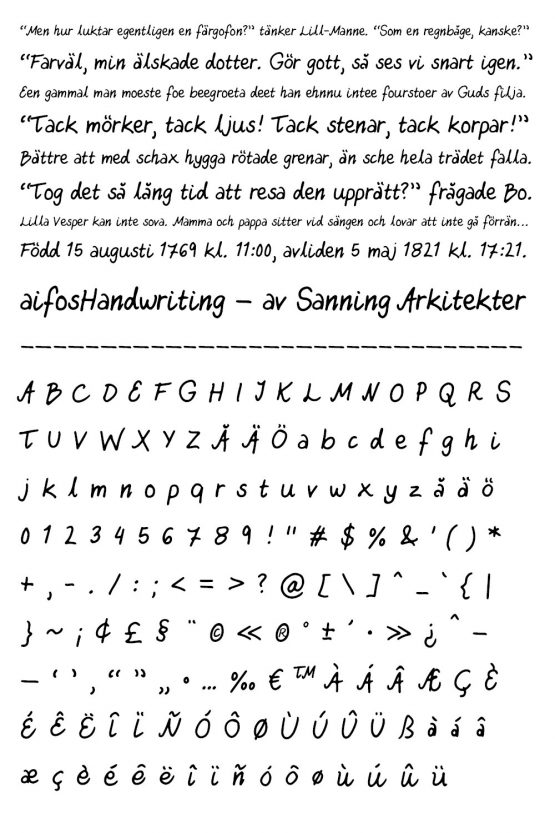 “Men hur luktar egentligen en färgofon?” tänker Lill-Manne. “Som en regnbåge, kanske?”
“Farväl, min älskade dotter. Gör gott, så ses vi snart igen.”
Een gammal man moeste foe beegroeta deet han ehnnu intee fourstoer av Guds filja.
“Tack mörker, tack ljus! Tack stenar, tack korpar!”
Bättre att med schax hygga rötade grenar, än sche hela trädet falla.
“Tog det så lång tid att resa den upprätt?” frågade Bo.
Lilla Vesper kan inte sova. Mamma och pappa sitter vid sängen och lovar att inte gå förrän...
Född 15 augusti 1769 kl. 11:00, avliden 5 maj 1821 kl. 17:21.
aifosHandwriting – av Sanning Arkitekter
_______________________________
A B C D E F G H I J K L M N O P Q R S
T U V W X Y Z Å Ä Ö a b c d e f g h i
j k l m n o p q r s t u v w x y z å ä ö
0 1 2 3 4 5 6 7 8 9 ! " # $ % & ' ( ) *
+ , - . / : ; < = > ? @ [ \ ] ^ _ ` { |
} ~ ¡ ¢ £ § ¨ © « ® ° ± ´ · » ¿ ˆ –
— ‘ ’ ‚ “ ” „ • … ‰ € ™ À Á Â Æ Ç È
É Ê Ë Î Ï Ñ Ó Ô Ø Ù Ú Û Ü ß à á â
æ ç è é ê ë î ï ñ ó ô ø ù ú û ü